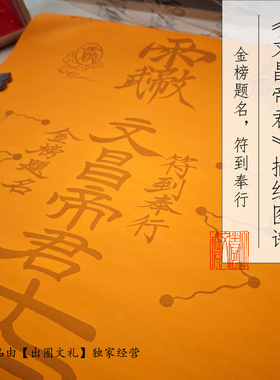 《文昌帝君》描绘图
金榜题名，符到奉行
符到奉行
文昌帝君
金榜题名
名由【出圈文礼】独家经营